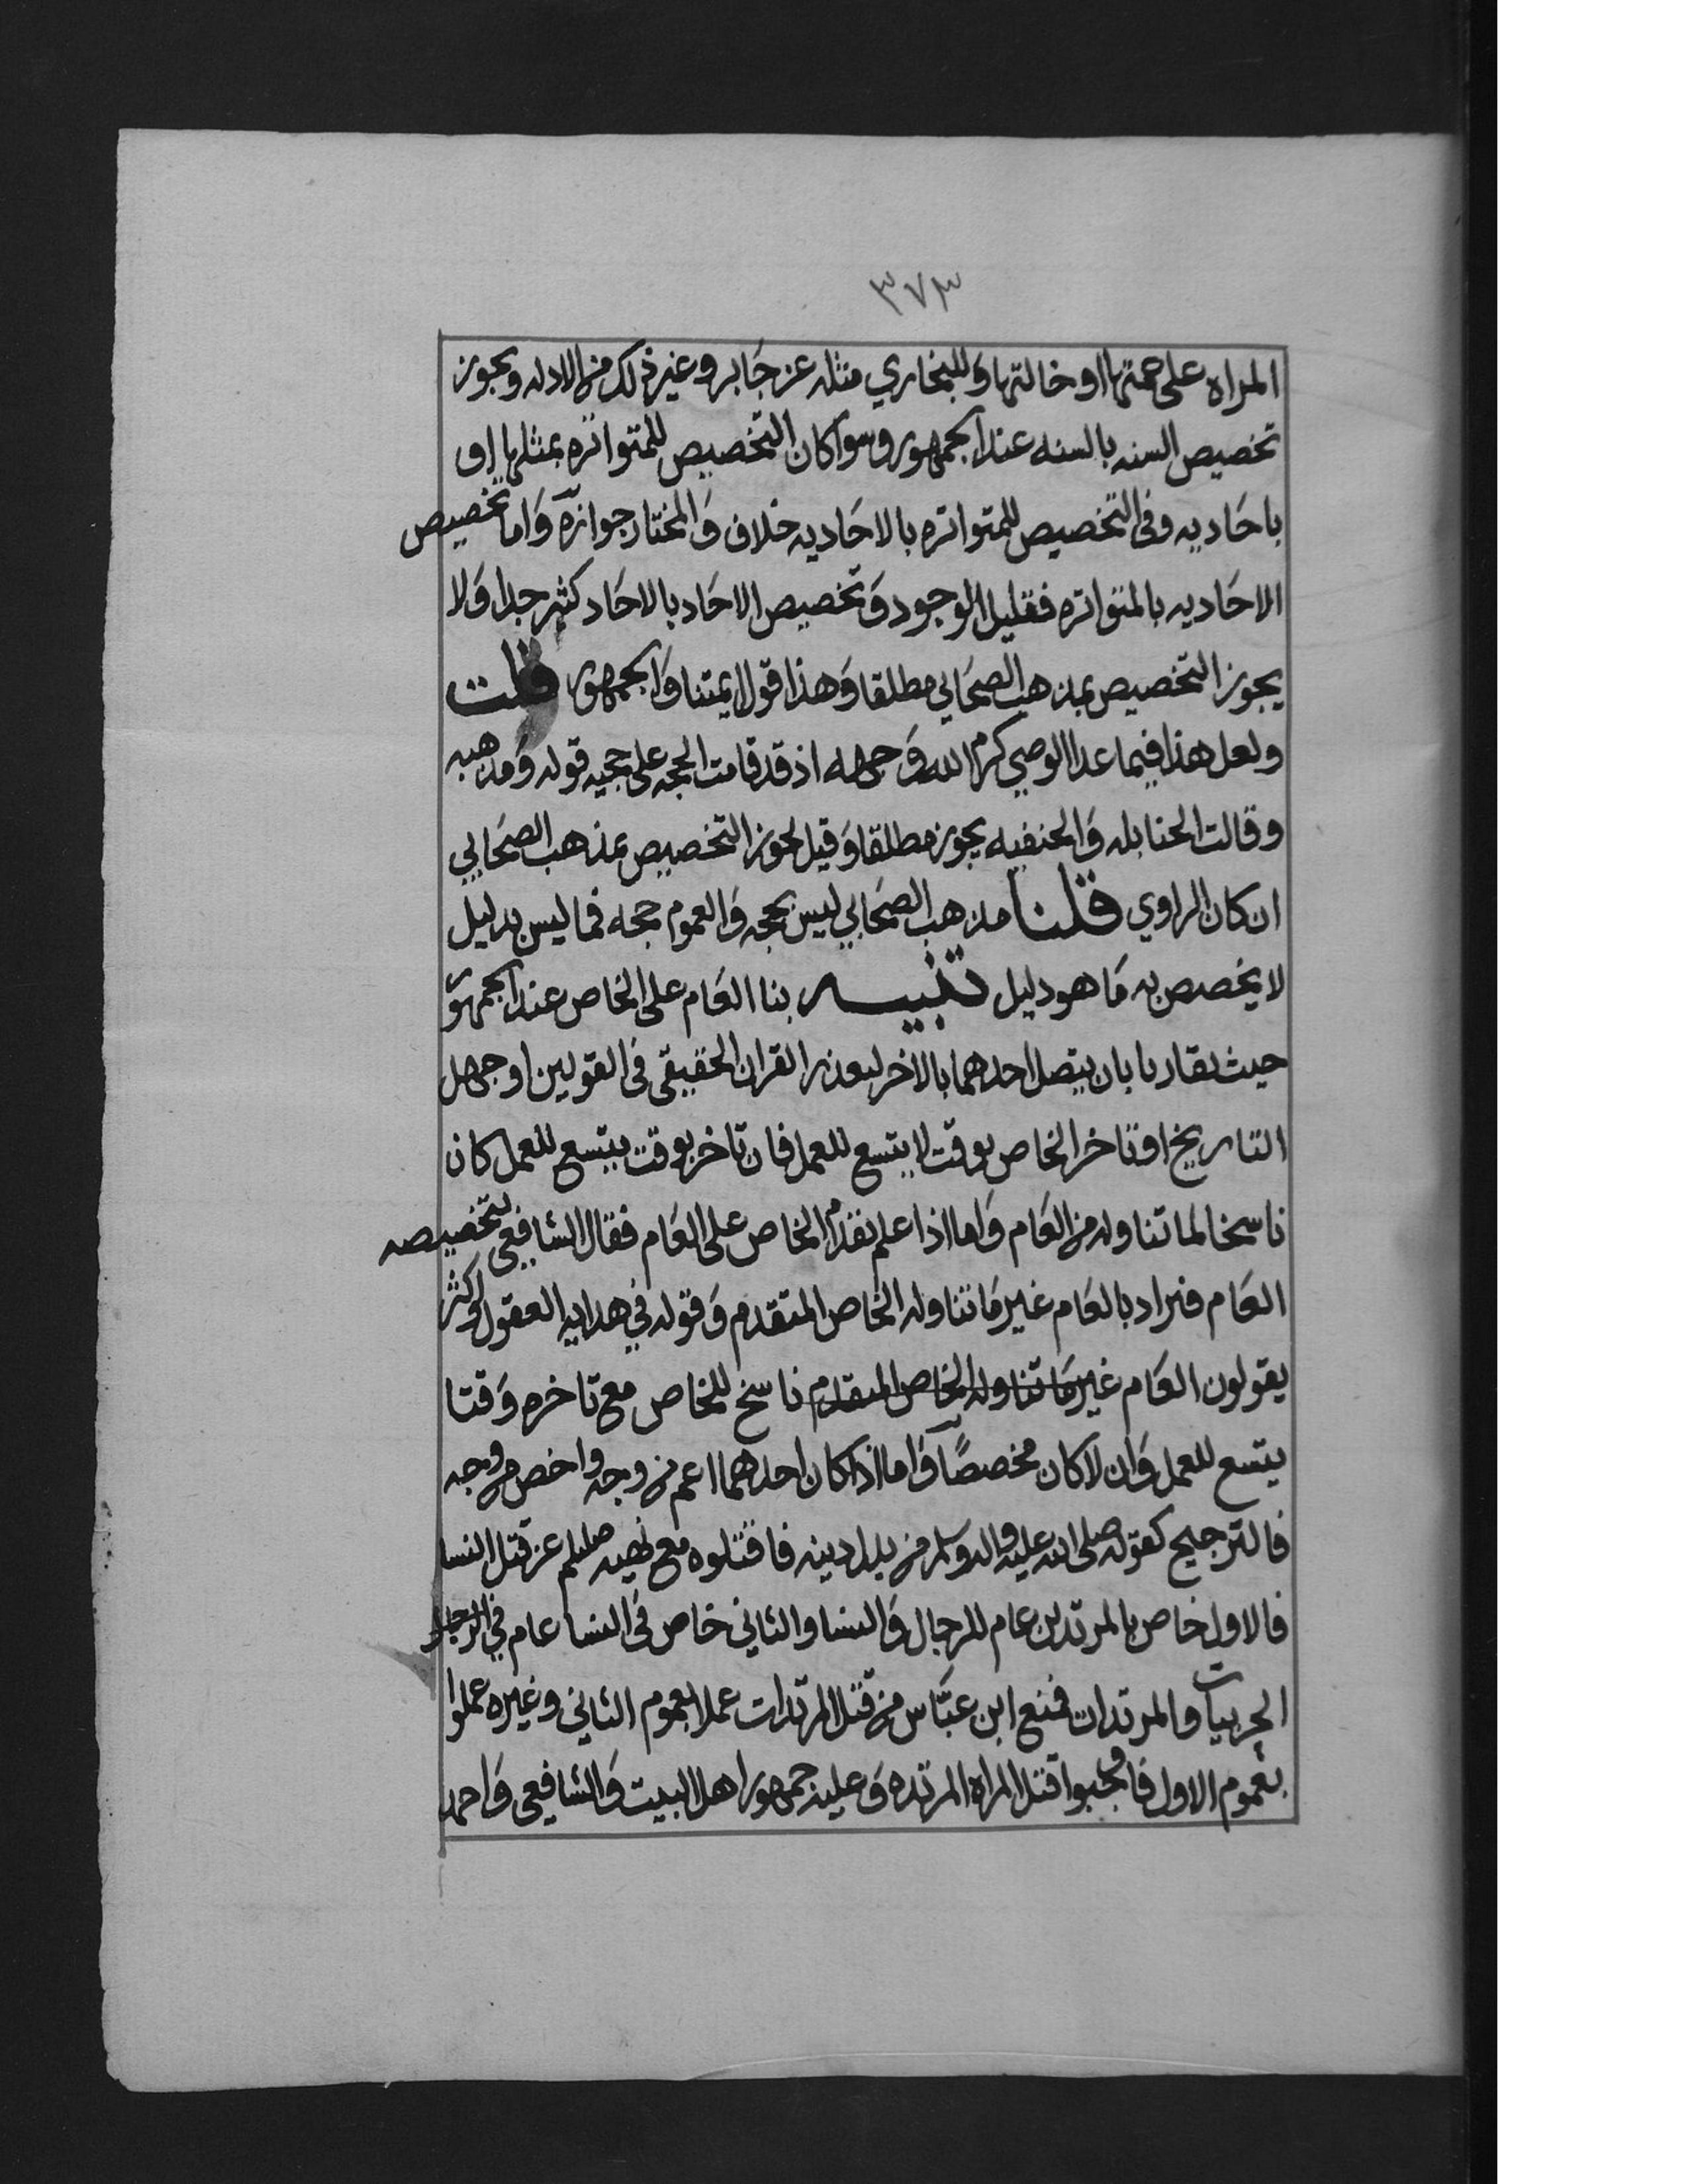 ٣٧٣
المراه على عمتها او خالتها وللبخاري مثله عن جابر وغير ذلك من الادله ويجوز
تخصيص السنه بالسنه عند الجمهور وسوا كان التخصيص للمتواتره بمثلها او
باحاديه وفي التخصيص للمتواتره بالاحاديه خلاف والمختار جوازه واما تخصيص
الاحاديه بالمتواتره فقليل الوجود وتخصيص الاحاد بالاحاد كثير جدا ولا
يجوز التخصيص بمذهب الصحابي مطلقا وهذا قول ايمتنا والجمهور قلت
ولعل هذا فيما عدا الوصي كرم الله وجهه اذ قد قامت الحجه على حجيه قوله ومذهبه
وقالت الحنابله والحنفيه يجوز مطلقا وقيل يجوز التخصيص بمذهب الصحابي
ان كان الراوي قلنا مذهب الصحابي ليس بحجه والعموم حجه فما ليس بدليل
لا يخصص به ما هو دليل تنبيه بنا العام على الخاص عند الجمهور
حيث تقاربا بان يتصل احدهما بالاخر لتعذر القران الحقيقي في القولين او جهل
التاريخ او تاخر الخاص بوقت لا يتسع للعمل فان تاخر بوقت يتسع للعمل كان
ناسخا لما تناوله من العام واما اذا علم تقدم الخاص على العام فقال الشافعي بتخصيصه
العام فيراد بالعام غير ما تناوله الخاص المتقدم وقوله في هدايه العقول والاكثر
يقولون العام غير ما تناوله الخاص المتقدم ناسخ للخاص مع تاخره وقتا
يتسع للعمل وان لا كان مخصصًا واما اذا كان احدهما اعم من وجه واخص من وجه
فالترجيح كقوله صلى الله عليه واله وسلم من بدل دينه فاقتلوه مع نهيه صللم عن قتل النسا
فالاول خاص بالمرتدين عام للرجال والنسا والثاني خاص في النسا عام في الرجال
الحربيات والمرتدات فمنع ابن عباس من قتل المرتدات عملا بعموم الثاني وغيره عملوا
بعموم الاول فاوجبوا قتل المراه المرتده وعليه جمهور اهل البيت والشافعي واحمد